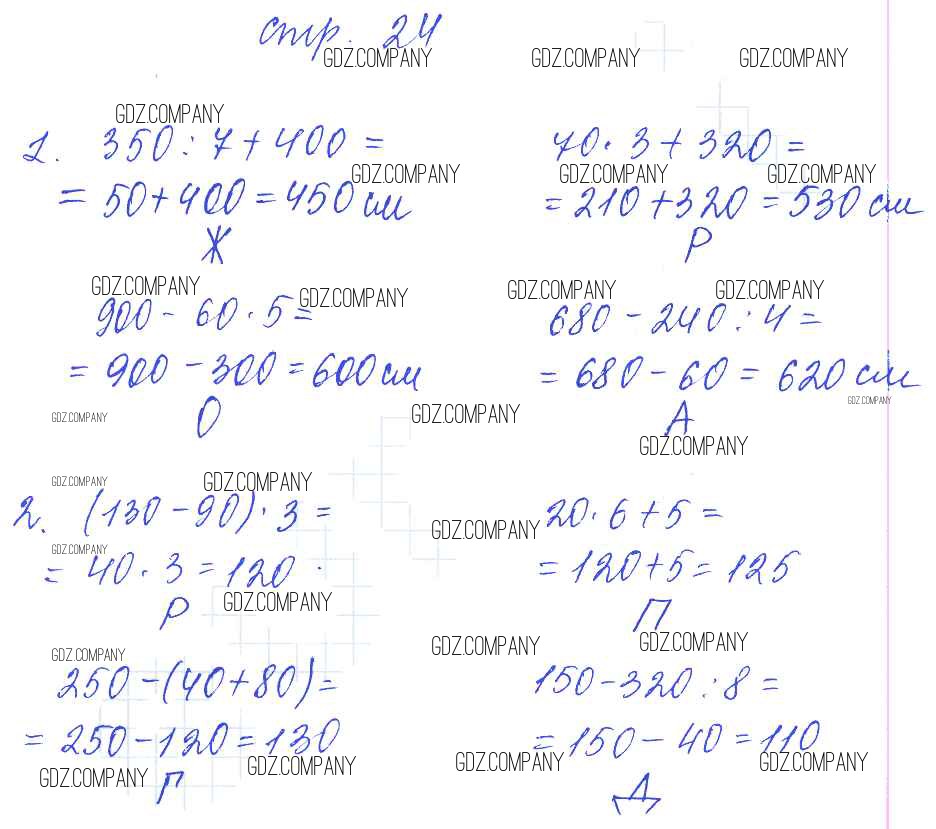 стр. 24
GDZ.COMPANY GDZ.COMPANY GDZ.COMPANY
GDZ.COMPANY
1. 350 : 7 + 400 =
70 · 3 + 320 =
GDZ.COMPANY GDZ.COMPANY GDZ.COMPANY
= 50 + 400 = 450 см
= 210 + 320 = 530 см
Ж
Р
GDZ.COMPANY GDZ.COMPANY GDZ.COMPANY GDZ.COMPANY
900 - 60 · 5 =
680 - 240 : 4 =
= 900 - 300 = 600 см
= 680 - 60 = 620 см
GDZ.COMPANY
GDZ.COMPANY GDZ.COMPANY
О
А
GDZ.COMPANY
GDZ.COMPANY GDZ.COMPANY
2. (130 - 90) · 3 =
20 · 6 + 5 =
GDZ.COMPANY
GDZ.COMPANY
= 40 · 3 = 120
= 120 + 5 = 125
GDZ.COMPANY
Р
П
GDZ.COMPANY GDZ.COMPANY GDZ.COMPANY
250 - (40 + 80) =
150 - 320 : 8 =
= 250 - 120 = 130
= 150 - 40 = 110
GDZ.COMPANY GDZ.COMPANY GDZ.COMPANY GDZ.COMPANY
Г
Д